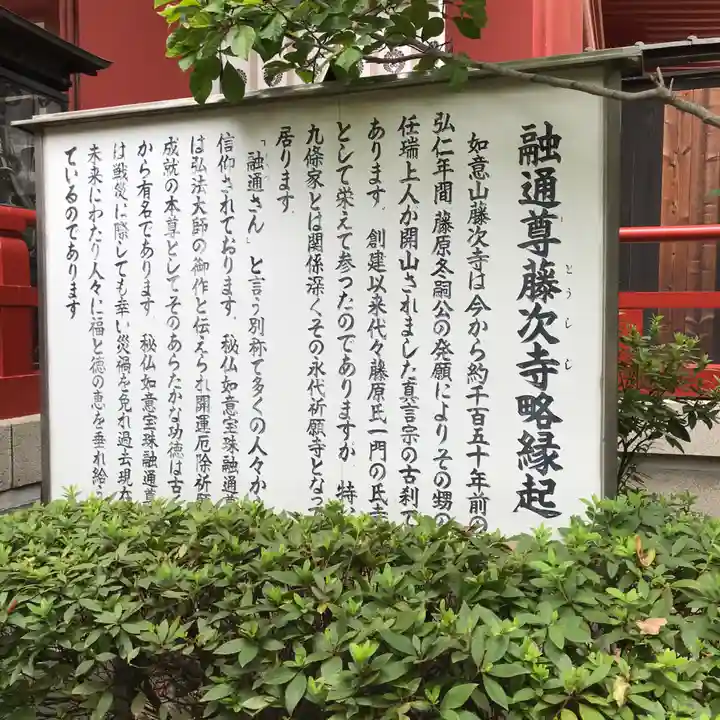 融通尊藤次寺略縁起
とうじじ
如意山藤次寺は今から約千百五十年前の
弘仁年間 藤原冬嗣公の発願によりその甥の
任瑞上人が開山されました真言宗の古刹で
あります。創建以来代々藤原氏一門の氏寺
として栄えて参ったのでありますが 特に
九條家とは関係深くその永代祈願寺となって
居ります。
「融通さん」と言う別称で多くの人々か
信仰されております。秘仏如意宝珠融通尊
は弘法大師の御作と伝えられ開運厄除祈願
成就の本尊としてそのあらたかな功徳は古
から有名であります。秘仏如意宝珠融通尊
は戦災に際しても幸い災禍を免れ過去現在
未来にわたり人々に福と徳の恵を垂れ給
ているのであります